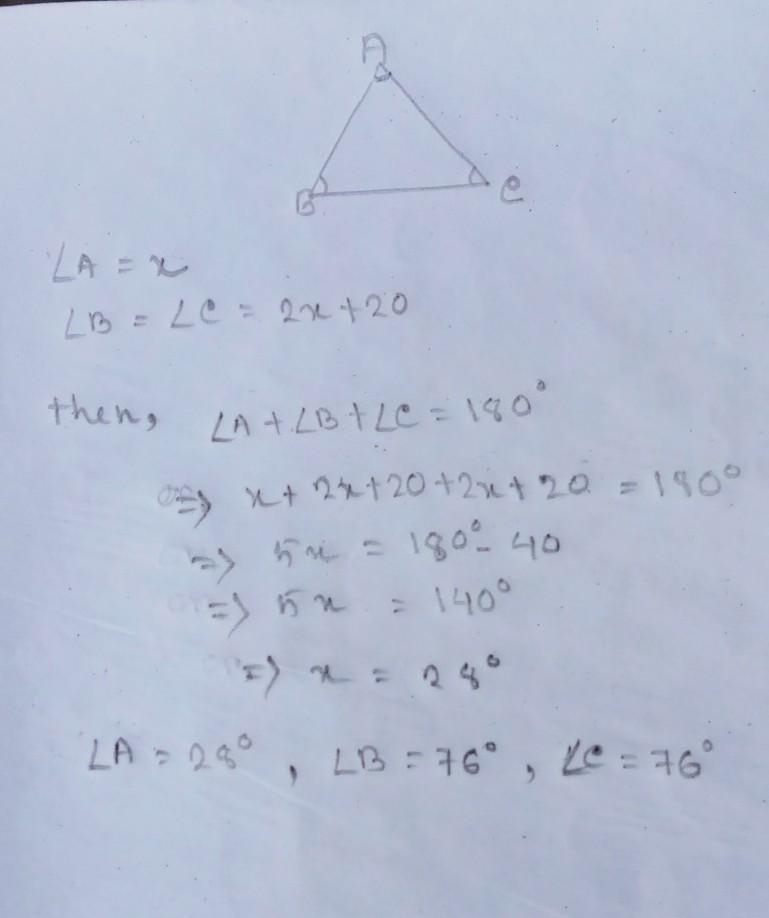 A
B C
∠A = x
∠B = ∠C = 2x+20
then, ∠A+∠B+∠C = 180°
=> x+ 2x+20+2x+20 = 180°
=> 5x = 180°- 40
=> 5x = 140°
=> x = 28°
∠A = 28°, ∠B = 76°, ∠C = 76°